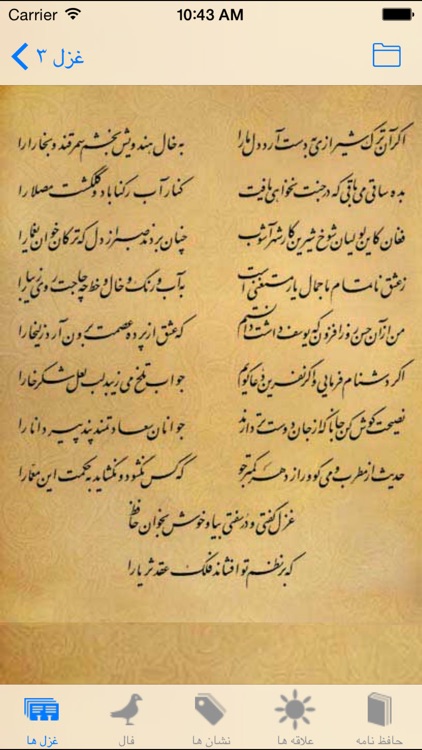 Carrier 10:43 AM
غزل ۳
اگر آن ترک شیرازی به دست آرد دل ما را به خال هندویش بخشم سمرقند و بخارا را
بده ساقی می باقی که در جنت نخواهی یافت کنار آب رکناباد و گلگشت مصلا را
فغان کاین لولیان شوخ شیرین کار شهرآشوب چنان بردند صبر از دل که ترکان خوان یغما را
ز عشق ناتمام ما جمال یار مستغنی است به آب و رنگ و خال و خط چه حاجت روی زیبا را
من از آن حسن روزافزون که یوسف داشت دانستم که عشق از پرده عصمت برون آرد زلیخا را
اگر دشنام فرمایی وگر نفرین دعا گویم جواب تلخ می زیبد لب لعل شکرخا را
نصیحت گوش کن جانا که از جان دوست تر دارند جوانان سعادتمند پند پیر دانا را
حدیث از مطرب و می گو و راز دهر کمتر جو که کس نگشود و نگشاید به حکمت این معما را
غزل گفتی و در سفتی بیا و خوش بخوان حافظ
که بر نظم تو افشاند فلک عقد ثریا را
حافظ نامه علاقه ها نشان ها فال غزل ها